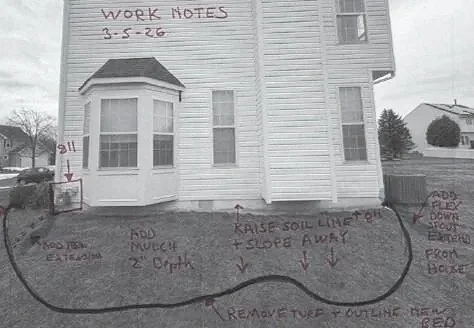 WORK NOTES
3-5-26
811
ADD
EXTENSION
ADD
MULCH
2" Depth
RAISE SOIL LINE
+ SLOPE AWAY
ADD
FLEX
DOWN
SPOUT
EXTEND
FROM
HOUSE
REMOVE TURF + OUTLINE NEW
BED